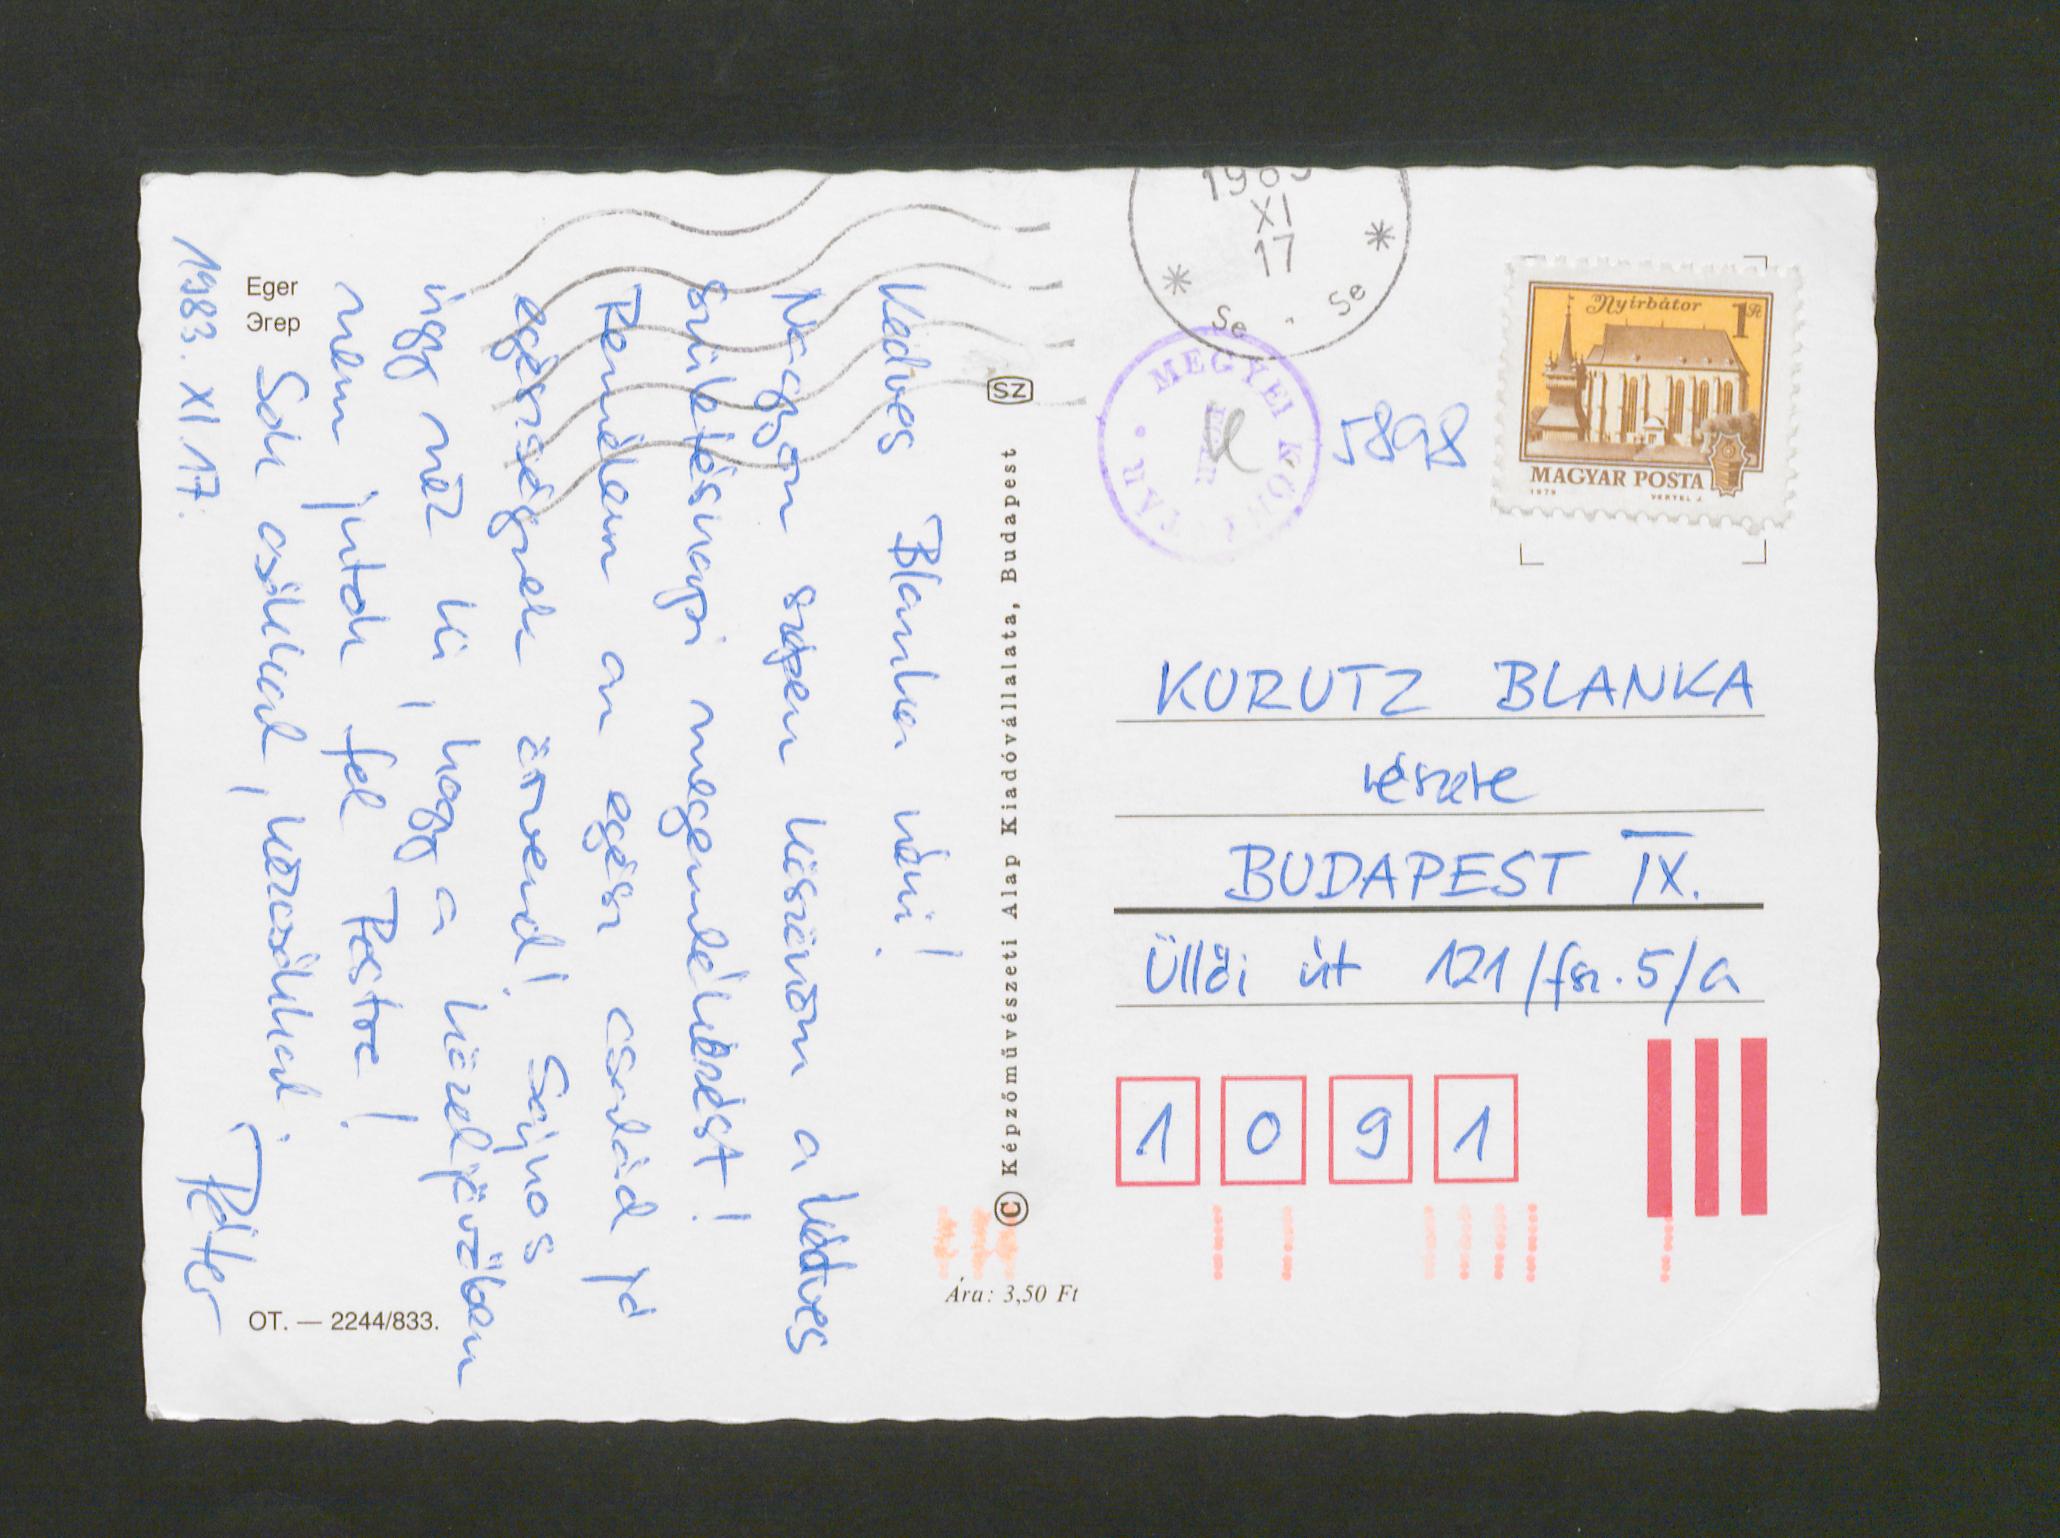 Eger
Эгер
Kedves Blanka néni!
Nagyon szépen köszönöm a kedves
születésnapi megemlékezést!
Remélem az egész család jó
egészségnek örvend! Sajnos
úgy néz ki, hogy a közeljövőben
nem jutok fel Pestre!
Sok csókkal, kézcsókkal:
Péter
1983. XI 17.
OT. — 2244/833.
SZ
© Képzőművészeti Alap Kiadóvállalata, Budapest
Ára: 3,50 Ft
1983
XI
17
Se . Se
MEGYEI KÖNYVTÁR
5898
Nyírbátor 1 Ft
MAGYAR POSTA
1979 VERTEL J.
KURUTZ BLANKA
részére
BUDAPEST IX.
Üllői út 121/fsz. 5/a
1 0 9 1